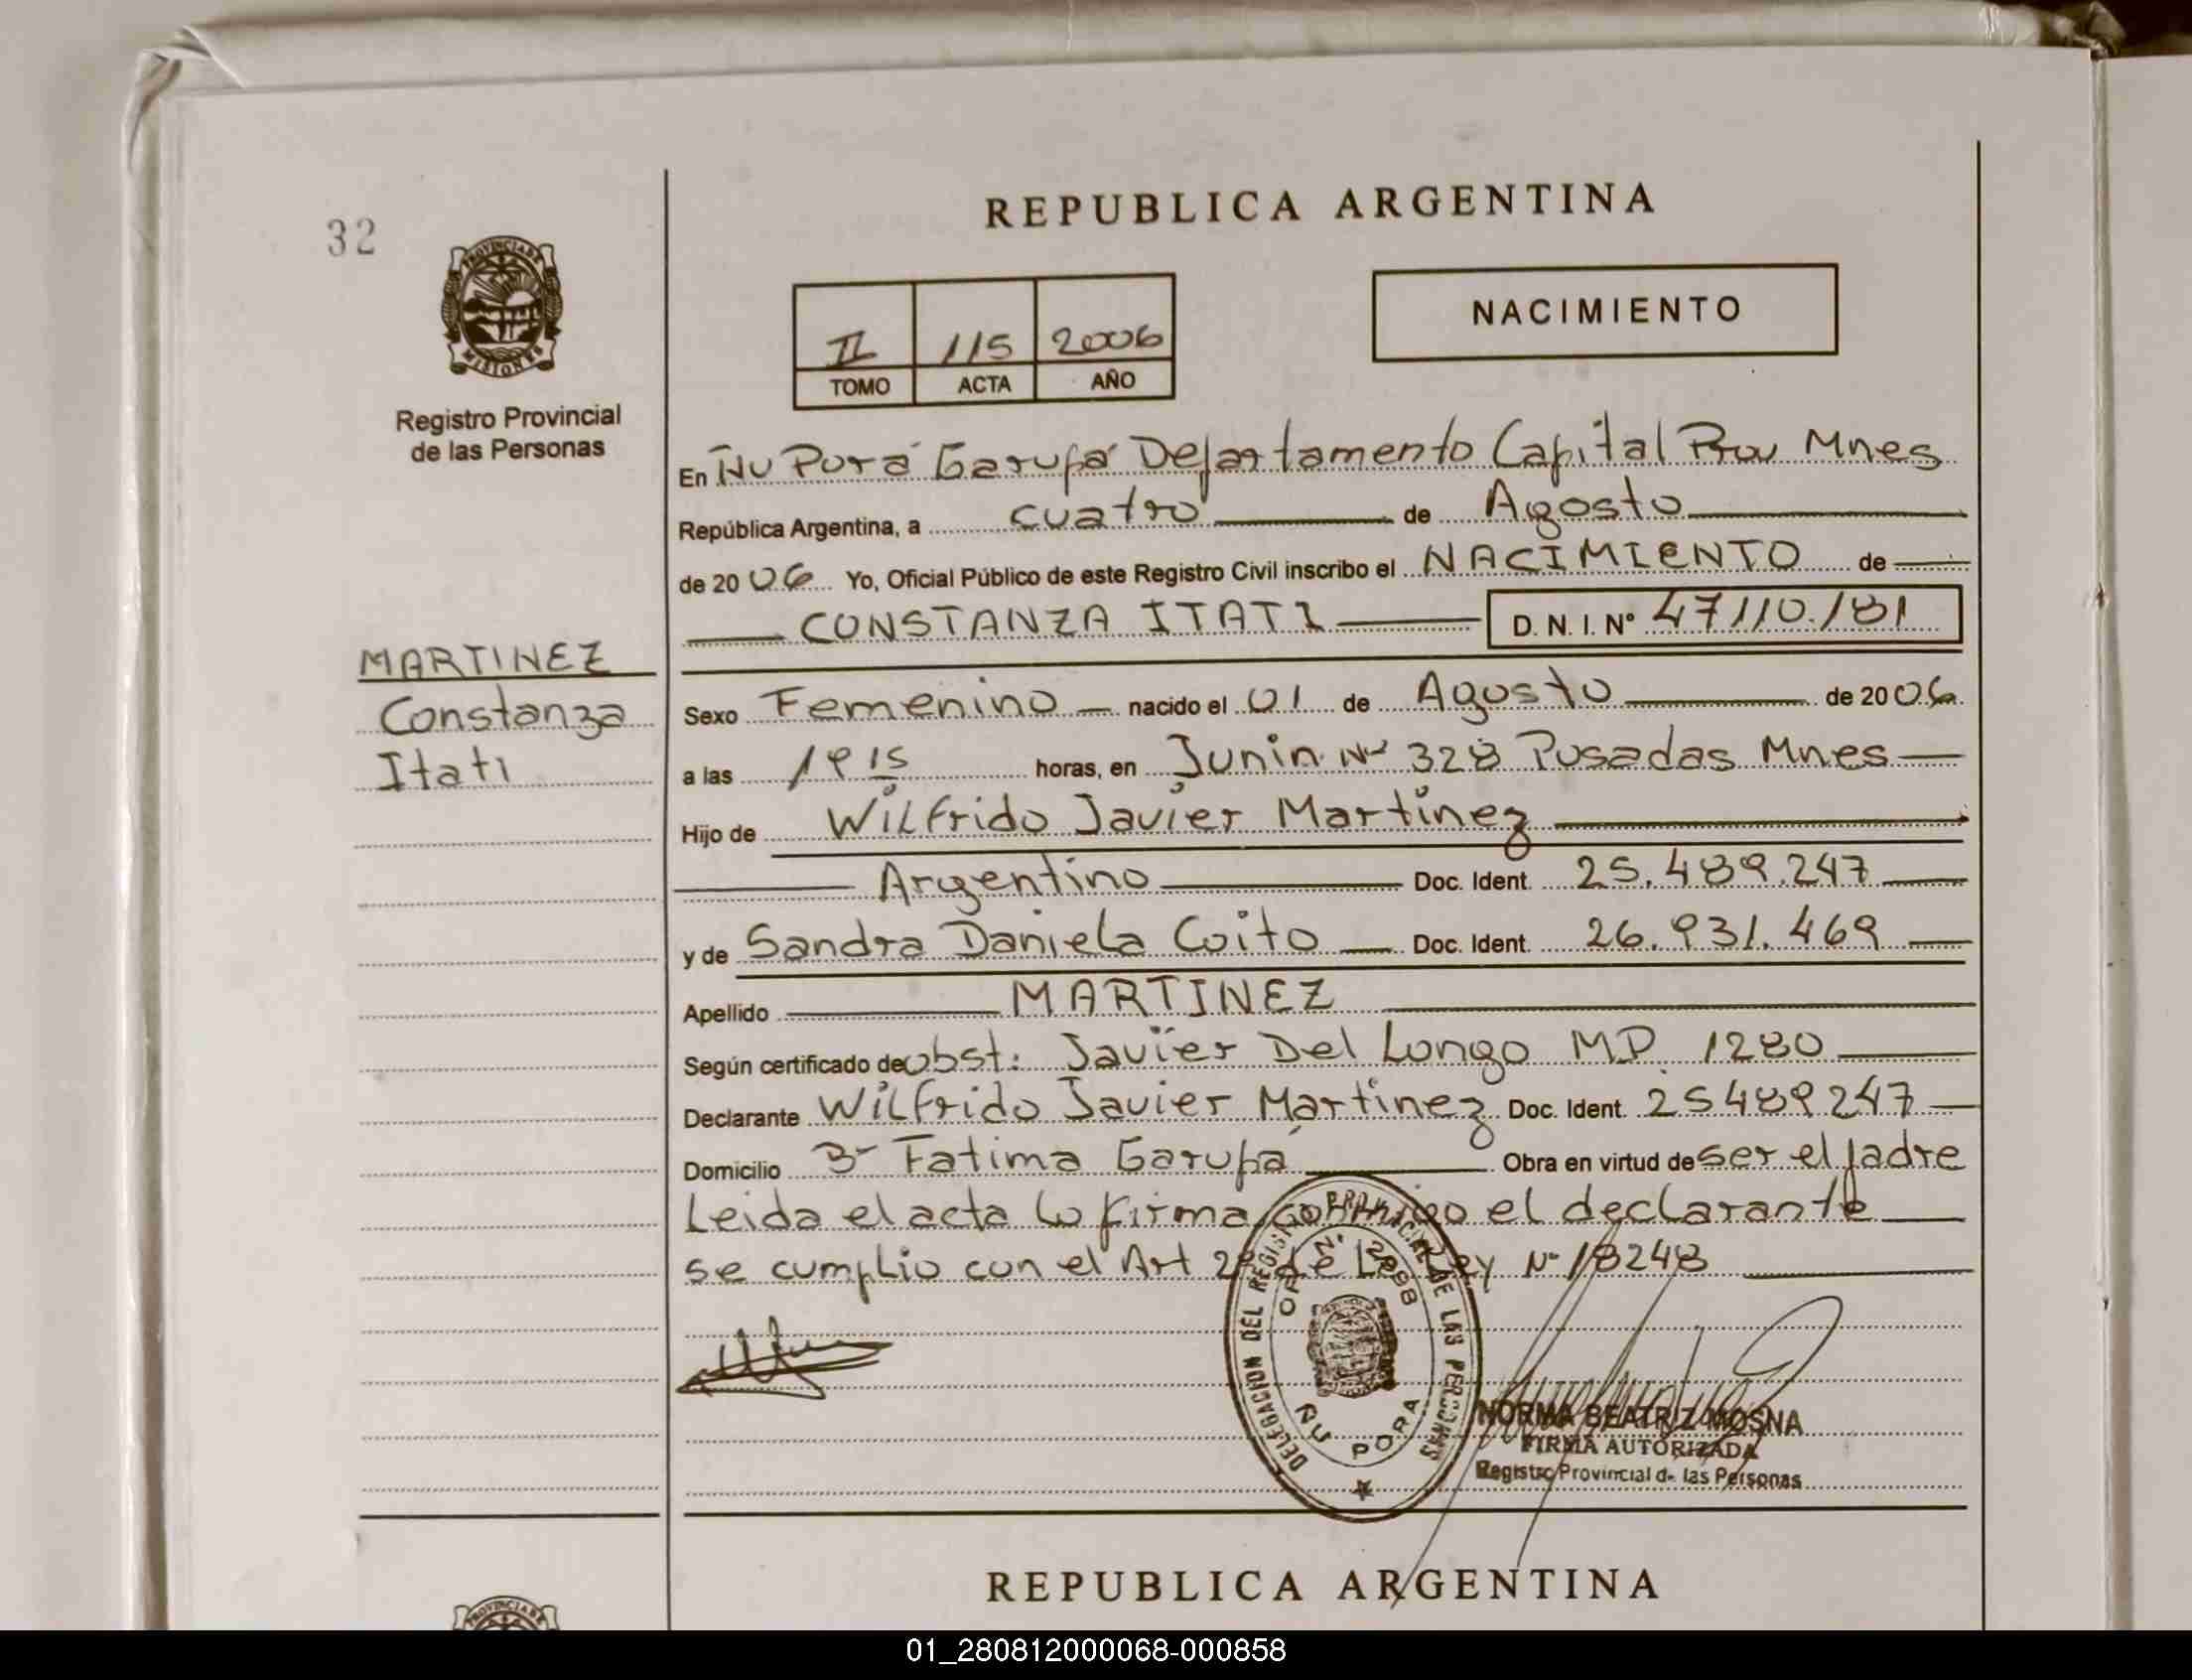 32
PROVINCIA DE
MISIONES
Registro Provincial
de las Personas
MARTINEZ
Constanza
Itati
REPUBLICA ARGENTINA
NACIMIENTO
II 115 2006
TOMO ACTA AÑO
En Ñu Porá Garupá Departamento Capital Prov Mnes
República Argentina, a cuatro de Agosto
de 2006 Yo, Oficial Público de este Registro Civil inscribo el NACIMIENTO de
CONSTANZA ITATI D. N. I. Nº 47110.181
Sexo Femenino nacido el 01 de Agosto de 2006
a las 19 15 horas, en Junin Nº 328 Posadas Mnes
Hijo de Wilfrido Javier Martinez
Argentino Doc. Ident. 25.489.247
y de Sandra Daniela Coito Doc. Ident. 26.931.469
Apellido MARTINEZ
Según certificado de obst: Javier Del Longo MP 1280
Declarante Wilfrido Javier Martinez Doc. Ident. 25489247
Domicilio Bº Fatima Garupá Obra en virtud de ser el padre
Leida el acta lo firma conmigo el declarante
se cumplio con el Art 2º de La Ley Nº 18248
DELEGACION DEL REGISTRO PROVINCIAL DE LAS PERSONAS
ÑU PORA
NORMA BEATRIZ MOSNA
FIRMA AUTORIZADA
Registro Provincial de las Personas
REPUBLICA ARGENTINA
PROVINCIA DE
01_280812000068-000858